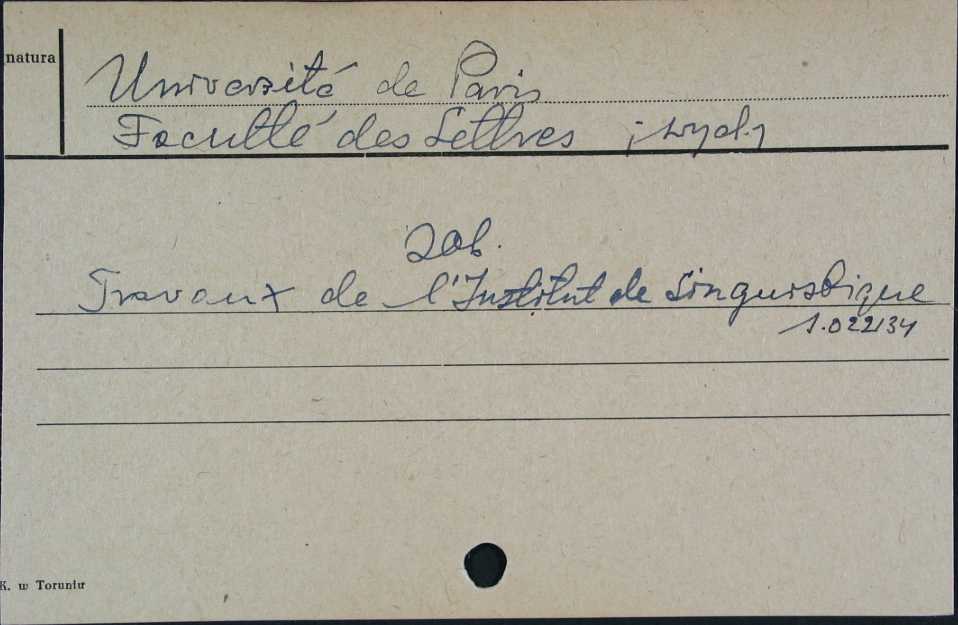 natura
Université de Paris
Faculté des Lettres ; wyd.
zob.
Travaux de l'Institut de Linguistique
1.022134
K. w Toruniu